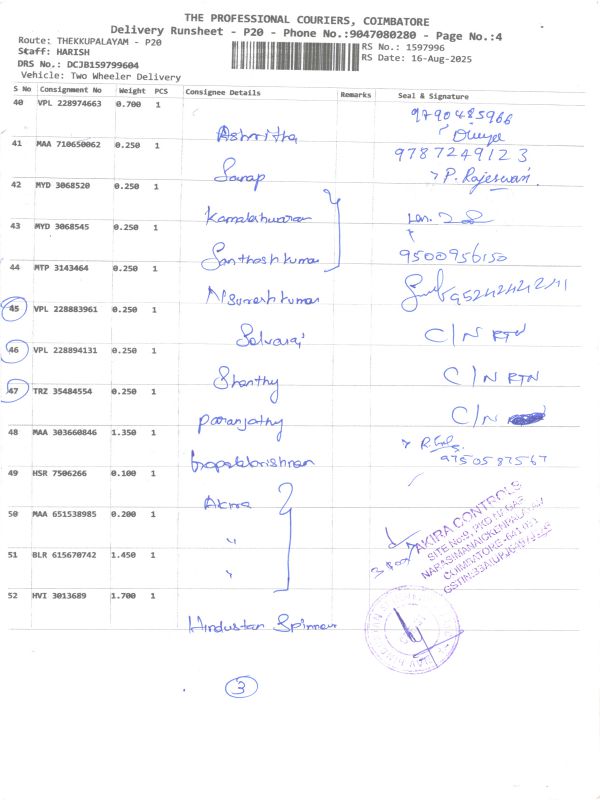 THE PROFESSIONAL COURIERS, COIMBATORE
Delivery Runsheet - P20 - Phone No.:9047080280 - Page No.:4
Route: THEKKUPALAYAM - P20
RS No.: 1597996
Staff: HARISH
RS Date: 16-Aug-2025
DRS No.: DCJB159799604
Vehicle: Two Wheeler Delivery
S No Consignment No Weight PCS Consignee Details Remarks Seal & Signature
40 VPL 228974663 0.700 1
9790485966
Ashritha
41 MAA 710650062 0.250 1
9787249123
Sarap
P. Rajeswari
42 MYD 3068520 0.250 1
Kamaleshwaran
43 MYD 3068545 0.250 1
Santhosh kumar
9500956150
44 MTP 3143464 0.250 1
N Sureshkumar
45 VPL 228883961 0.250 1
Selvaraj
C/N RTN
46 VPL 228894131 0.250 1
Shanthy
C/N RTN
47 TRZ 35484554 0.250 1
Paranjothy
C/N
48 MAA 303660846 1.350 1
Gopalakrishnan
9750587567
49 HSR 7506266 0.100 1
Akira
50 MAA 651538985 0.200 1
"
51 BLR 615670742 1.450 1
"
AKIRA CONTROLS
SITE No:9, PKD NAGAR
NARASIMANAICKENPALAYAM
COIMBATORE - 641 031
52 HVI 3013689 1.700 1
Hindustan Spinners
3